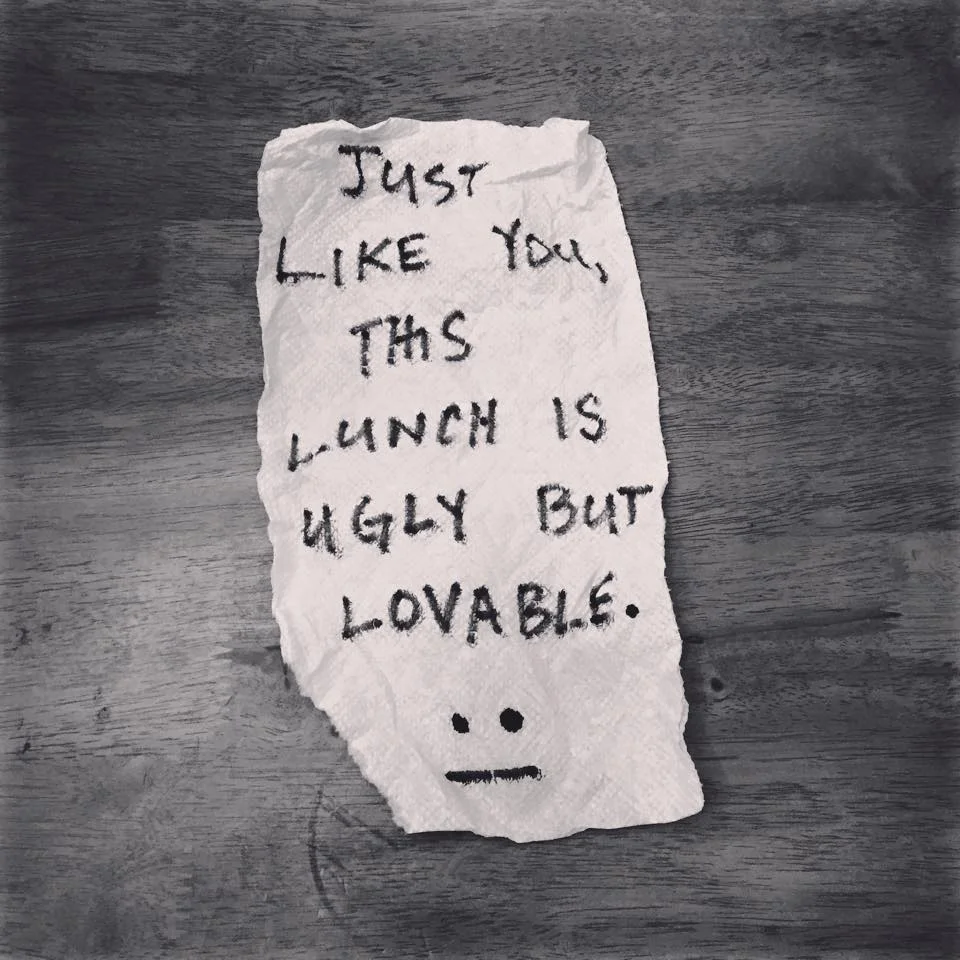 JUST
LIKE YOU,
THIS
LUNCH IS
UGLY BUT
LOVABLE.